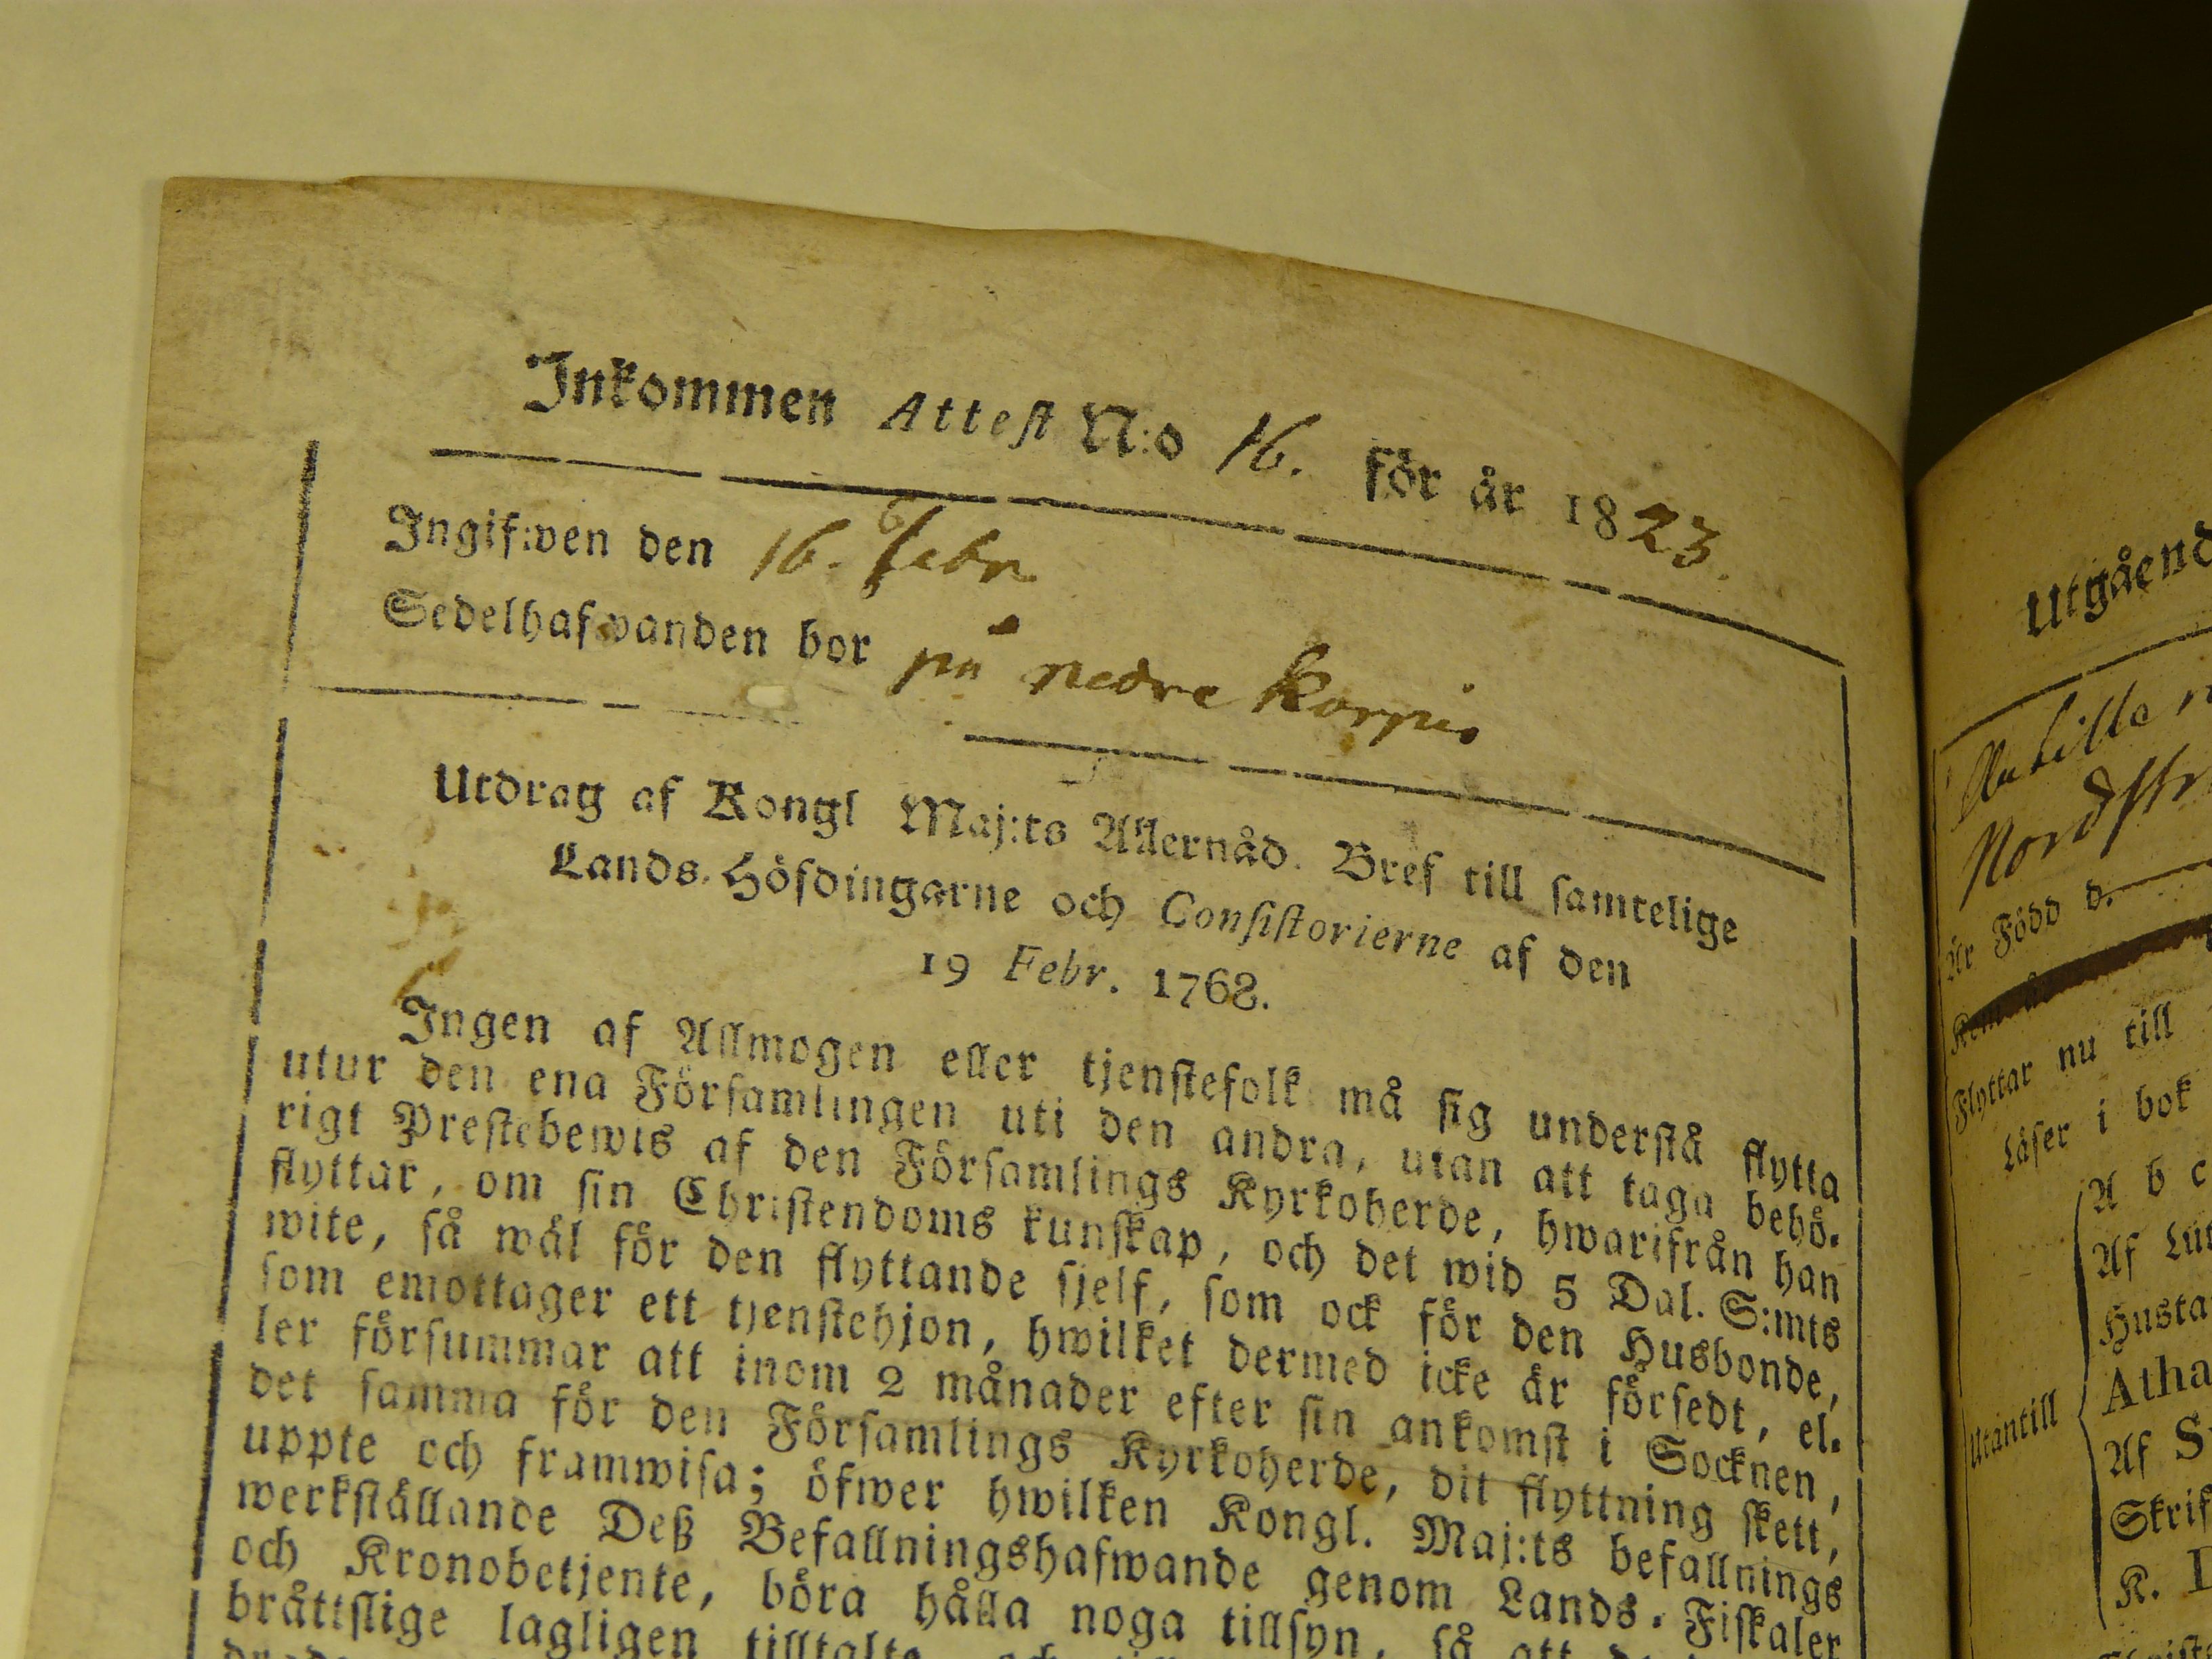 Inkommen Attest N:o 16. för år 1823.
Ingifwen den 16. Febr
Sedelhafwanden bor på nedre Korpis
Utdrag af Kongl Maj:ts Allernåd. Bref till samtelige
Lands-Höfdingarne och Consistorierne af den
19 Febr. 1768.
Ingen af Allmogen eller tjenstefolk må sig understå flytta
utur den ena Församlingen uti den andra, utan att taga behö-
rigt Prestebewis af den Församlings Kyrkoherde, hwarifrån han
flyttar, om sin Christendoms kunskap, och det wid 5 Dal. S:mts
wite, så wäl för den flyttande sjelf, som ock för den Husbonde,
som emottager ett tjenstehjon, hwilket dermed icke är försedt, el-
ler försummar att inom 2 månader efter sin ankomst i Socknen,
det samma för den Församlings Kyrkoherde, dit flyttning skett,
uppte och framwisa; öfwer hwilken Kongl. Maj:ts befallnings
werkställande Deß Befallningshafwande genom Lands-Fiskaler
och Kronobetjente, böra hålla noga tillsyn, så att
bråttslige lagligen tilltalte
Utgående
Nord
År Född d.
Flyttar nu till
Läser i bok
A b c
Af Lut
Husta
Atha
Utantill
Af S
Skrif
K.